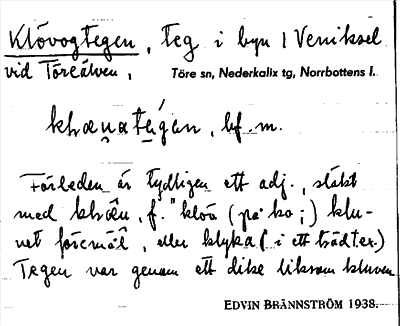 Klövogtegen, teg i byn Veniksel
vid Töreälven, Töre sn, Nederkalix tg, Norrbottens l.
bf. m.
Förleden är tydligen ett adj., släkt
med f. "klöv (på ko;) klu-
vet föremål, eller klyka (i ett träd t.ex.)
Tegen var genom ett dike liksom kluven
EDVIN BRÄNNSTRÖM 1938.